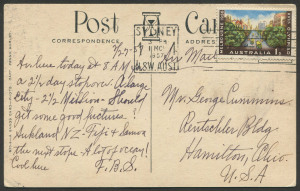 Post Card
CORRESPONDENCE
ADDRESS
SYDNEY
1957
N.S.W. AUST
AUSTRALIA
Air Mail
3/27-57
Am here today at 8 AM for
a 2½ day stopover. A large
city - 2½ Million - Should
get some good pictures!
Aukland, NZ - Fiji + Samoa
the next stops. A stopover!
Cool here
F.B.S.
Mr. George Cummins
Rentschler Bldg.
Hamilton, Ohio.
U.S.A